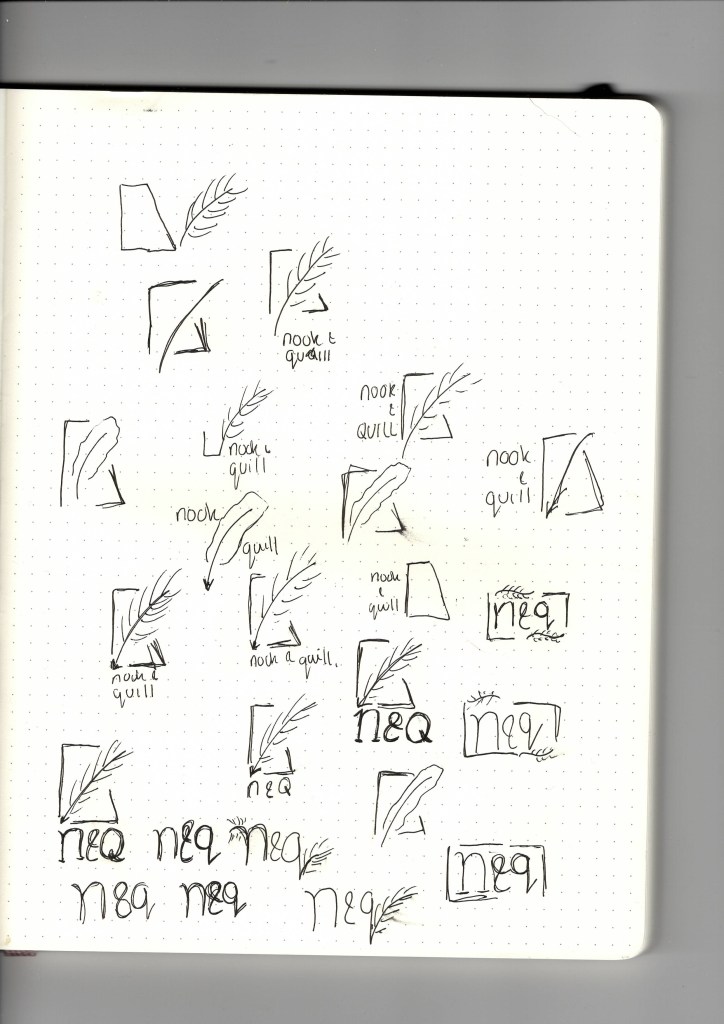 nook &
quill
nook
&
QUILL
nook &
quill
nook
&
quill
nook
quill
nook
&
quill
n&q
nook &
quill
nook & quill.
n&Q
n&q
n&Q
n&Q
n&q
n&q
n&q
n&q
n&q
n&q